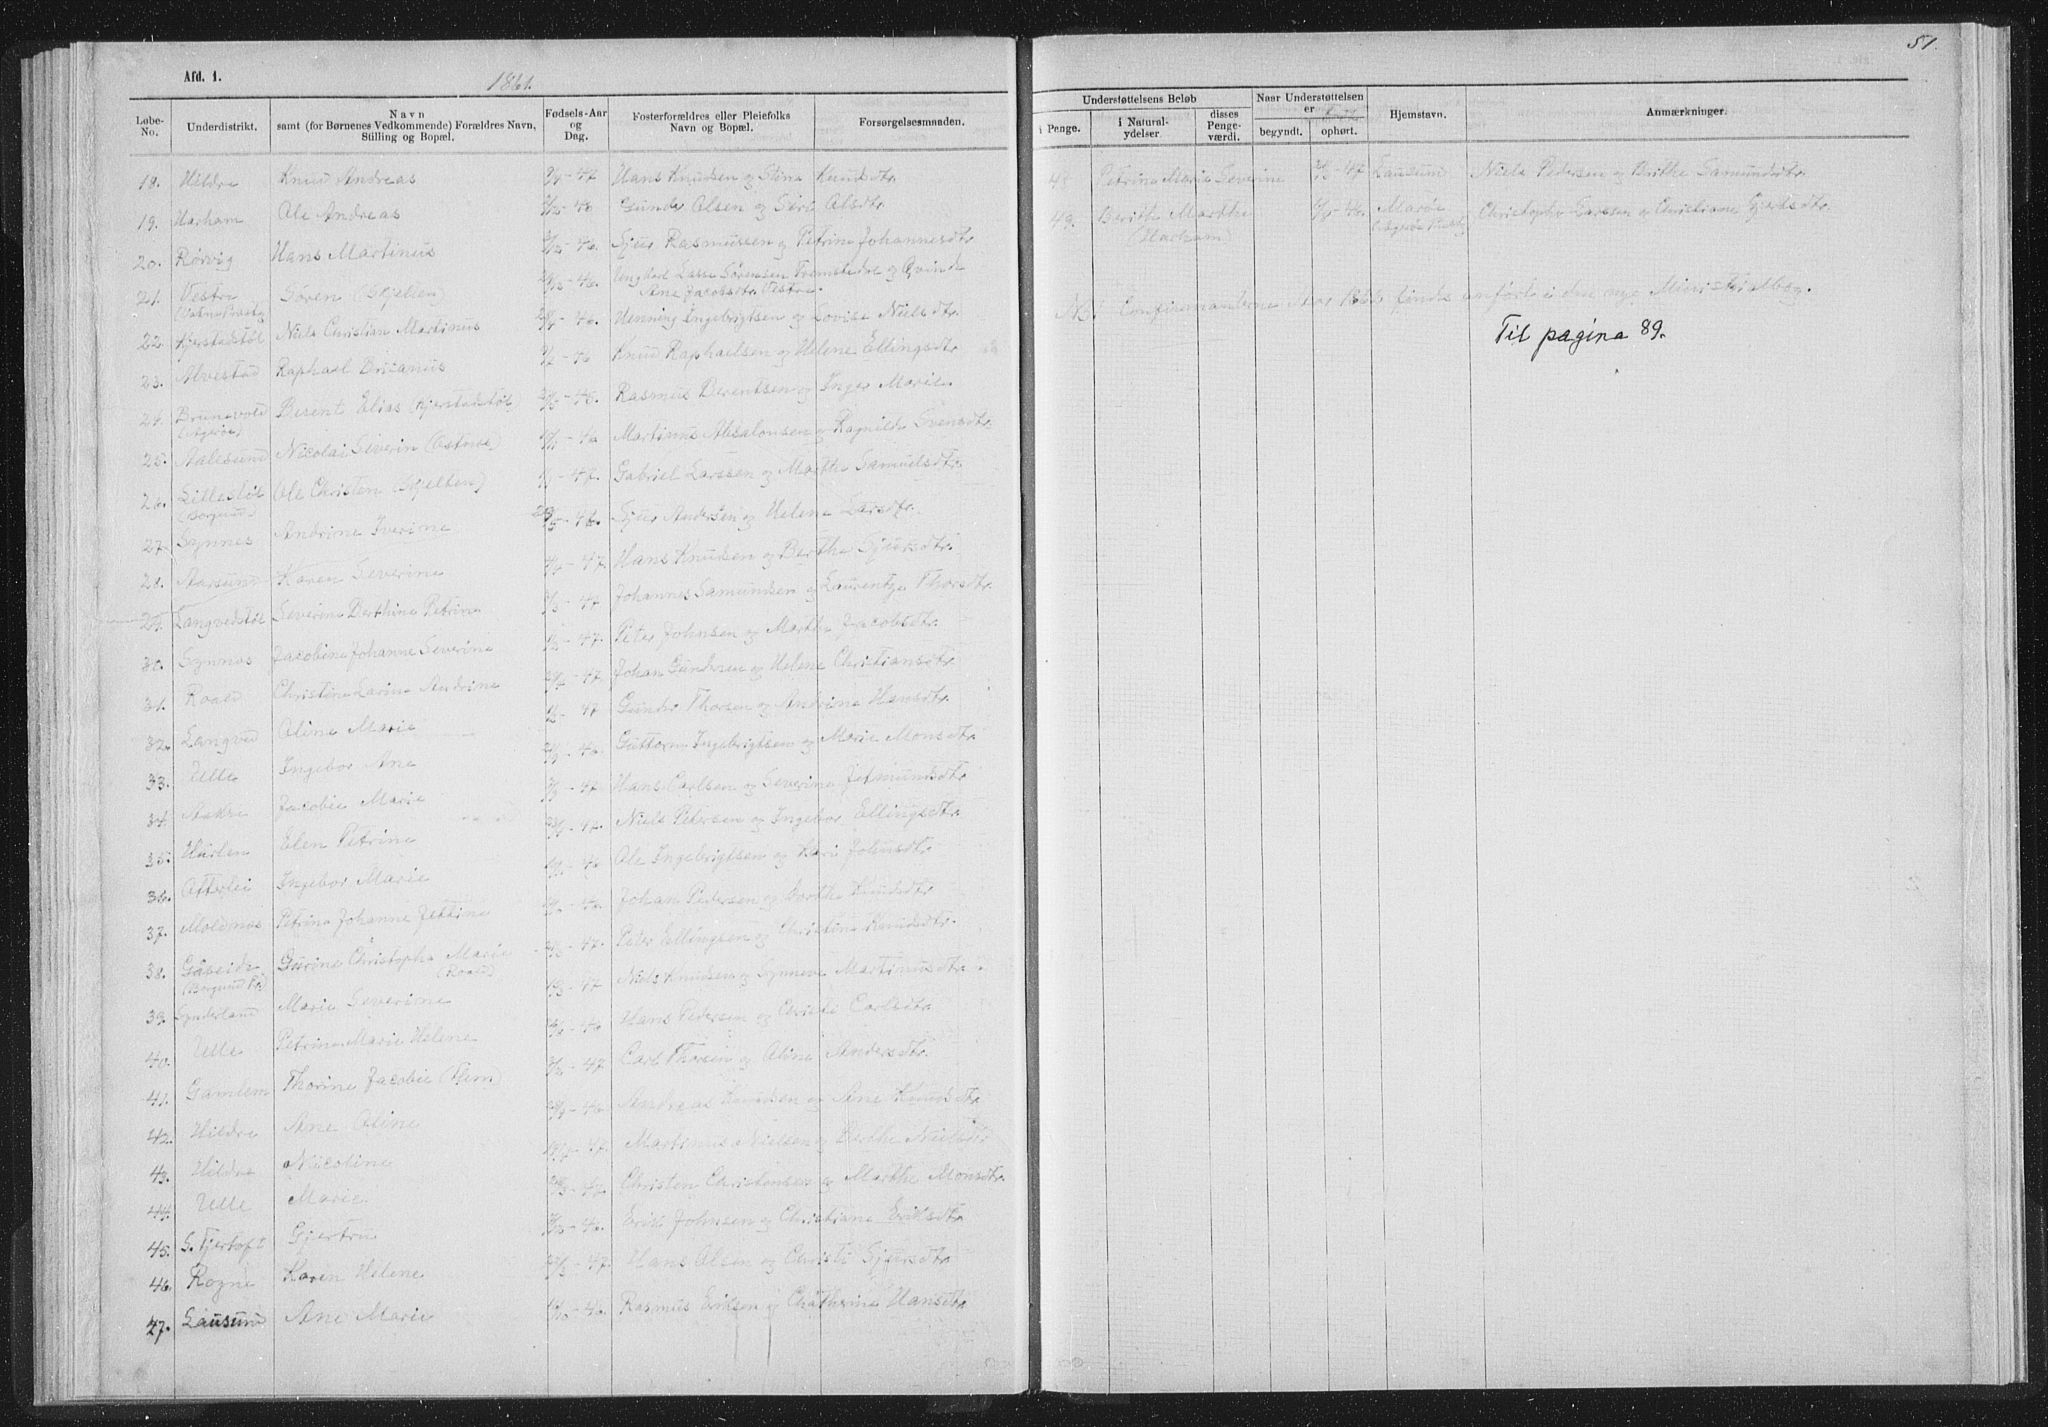 Afd. 1.
1861.
Løbe-No.
Underdistrikt.
Navn
samt (for Børnenes Vedkommende) Forældres Navn,
Stilling og Bopæl.
Fødsels-Aar
og
Dag.
Fosterforældres eller Pleiefolks
Navn og Bopæl.
Forsørgelsesmaaden.
18. Hildre Knud Andreas 47 Hans Knudsen og Stina Knudsdtr.
19. Harham Ole Andreas 46 Gunder Olsen og Siri Olsdtr.
20. Rørvig Hans Martinus 46. Sjur Rasmussen og Petrine Johannesdtr.
21. Vestre Søren (Skjelten) 46. Ungkarl Lasse Sørensen Fremstedre og Qvinde
Ane Jacobsdtr. Vestre.
22. Kjerstadstøl Niels Christian Martinus 46. Henning Ingebrigtsen og Lovise Nielsdtr.
23. Alvestad Raphael Bricanus 46 Knud Raphaelsen og Helene Ellingsdtr.
24. Brunevold Besent Elias (Kjerstadstøl) 46. Rasmus Berentsen og Inger Marie
25. Aalesund Nicolai Severin (Østnes) 46 Martinus Absalonsen og Ragnilde Svensdtr.
26. Litlestøl Ole Christen (Skjelten) 47. Gabriel Larssen og Marthe Samuelsdtr.
(Borgund)
27. Synnes Andrine Iverine 46. Sjur Andersen og Helene Larsdtr.
28. Aarsund Karen Severine 47. Hans Knudsen og Berthe Sjursdtr.
29. Langvedstøl Severine Berthine Petrine 47 Johannes Samundsen og Laurentze Thorsdtr.
30. Synnes Jacobine Johanne Severine 47. Peter Johnsen og Marthe Jacobsdtr.
31. Roald Christine Larine Andrine 47. Johan Gundersen og Helene Christiansdtr.
32. Langved Oline Marie 47 Gunder Thorsen og Andrine Hansdtr.
33. Ulle Ingebor Ane 46. Guttorm Ingebrigtsen og Marie Monsdtr.
34. Aakre Jacobie Marie 47. Hans Carlsen og Severine Jetmundsdtr.
35. Hurlen Elen Petrine 47. Niels Petersen og Ingebor Ellingsdtr.
36. Otterlei Ingebor Marie 46 Ole Ingebrigtsen og Kari Johnsdtr
37. Moldnes Petrine Johanne Jettine 46. Johan Pedersen og Dorthe Knudsdtr
38. Gaseide Gurine Christopha Marie 47. Peter Ellingsen og Christine Knudsdtr.
(Roald)
39. Synderland Marie Severine 47 Niels Knudsen og Synneve Martinusdtr.
40. Ulle Petrine Marie Helene 46 Hans Pedersen og Christi Carlsdtr
41. Gamlem Thorine Jacobie (Flem) 47 Carl Thorsen og Oline Andersdtr.
42. Hildre Ane Oline 46 Andreas Knudsen og Ane Knudsdtr.
43. Hildre Nicoline 47. Martinus Nielsen og Berthe Nielsdtr
44. Ulle Marie Christen Christensen og Marthe Monsdtr.
45. S. Fjertoft Gjertru 46. Erik Johnsen og Christiane Eriksdtr
46. Rogne Karen Helene 47. Hans Olsen og Christi Sjursdtr
47. Lausund Ane Marie 46. Rasmus Eriksen og Chatherine Hansdtr.
51.
Understøttelsens Beløb
i Penge.
i Natural-
ydelser.
disses
Penge-
værdi.
Naar Understøttelsen
er
begyndt.
ophørt.
Hjemstavn.
Anmærkninger.
48 Petrine Marie Severine 47 Lausund Niels Pedersen og Brithe Samundsdtr.
49. Berithe Marthe 46. Marøe Christopher Larssen og Christiane Gjertsdtr.
(Harham)
NB! Confirmanterne Aar 1862 findes anført i den nye Ministrialbog.
Til pagina 89.